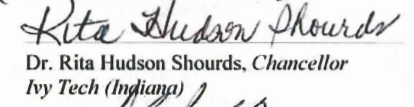 Rita Hudson Shourds
Dr. Rita Hudson Shourds, Chancellor
Ivy Tech (Indiana)